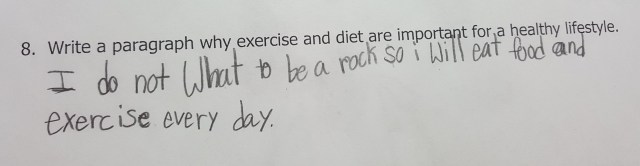 8. Write a paragraph why exercise and diet are important for a healthy lifestyle.
I do not What to be a rock so i Will eat food and
exercise every day.